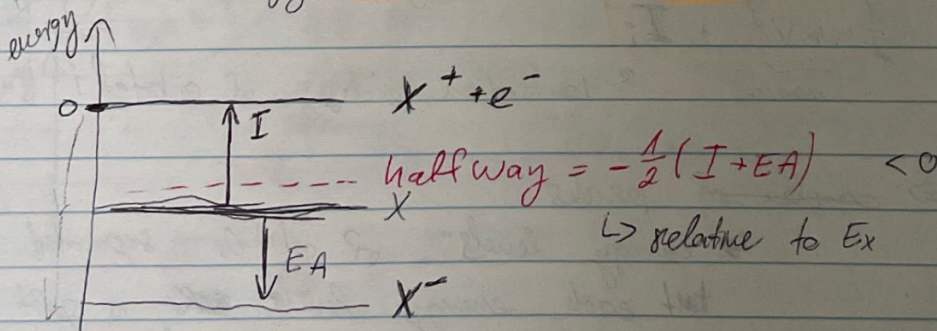 energy
0
X⁺ + e⁻
I
halfway = -½(I+EA) < 0
X
↳ relative to Ex
EA
X⁻